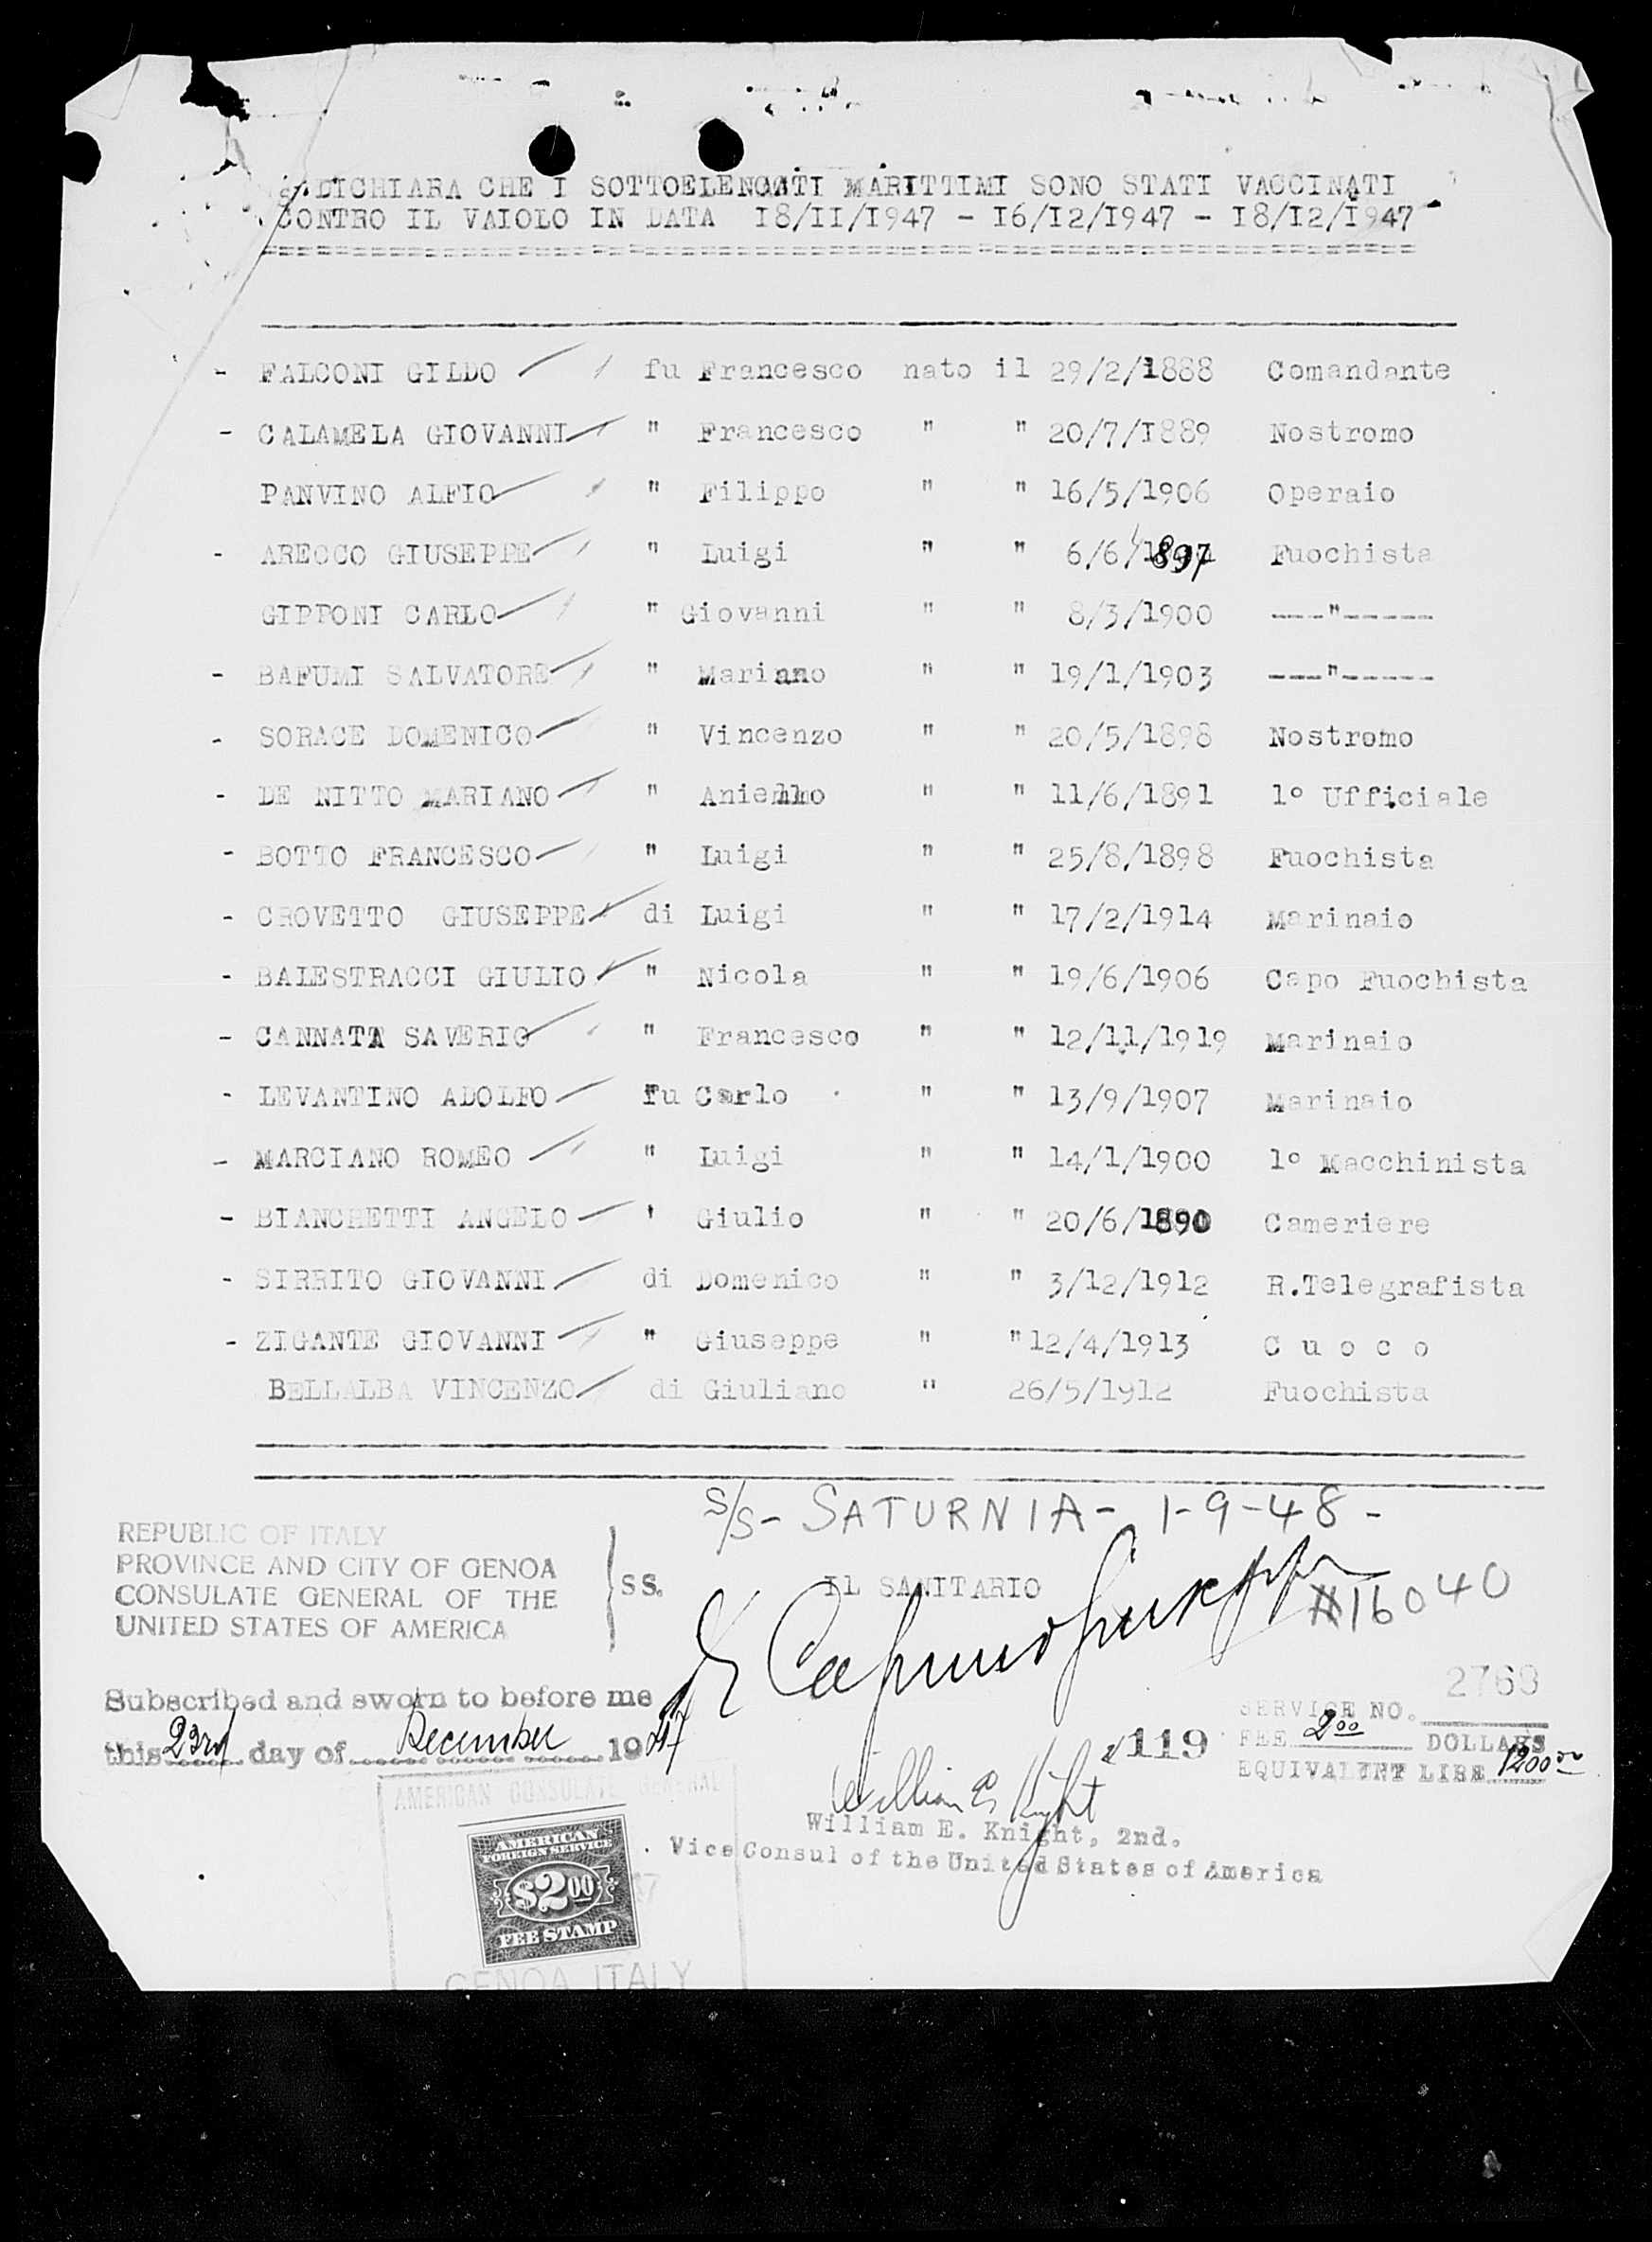 SI DICHIARA CHE I SOTTOELENCATI MARITTIMI SONO STATI VACCINATI
CONTRO IL VAIOLO IN DATA I8/II/I947 - I6/I2/I947 - I8/I2/I947
- FALCONI GILDO fu Francesco nato il 29/2/1888 Comandante
- CALAMELA GIOVANNI " Francesco " " 20/7/I889 Nostromo
PANVINO ALFIO " Filippo " " 16/5/1906 Operaio
- ARECCO GIUSEPPE " Luigi " " 6/6/1897 Fuochista
GIPPONI CARLO " Giovanni " " 8/3/1900 ---"-----
- BAFUMI SALVATORE " Mariano " " 19/1/1903 ---"-----
- SORACE DOMENICO " Vincenzo " " 20/5/1898 Nostromo
- DE NITTO MARIANO " Aniello " " 11/6/1891 1° Ufficiale
- BOTTO FRANCESCO " Luigi " " 25/8/1898 Fuochista
- CROVETTO GIUSEPPE di Luigi " " 17/2/1914 Marinaio
- BALESTRACCI GIULIO " Nicola " " 19/6/1906 Capo Fuochista
- CANNATA SAVERIO " Francesco " " 12/11/1919 Marinaio
- LEVANTINO ADOLFO fu Carlo " " 13/9/1907 Marinaio
- MARCIANO ROMEO " Luigi " " 14/1/1900 1° Macchinista
- BIANCHETTI ANGELO ' Giulio " " 20/6/1890 Cameriere
- SIRRITO GIOVANNI di Domenico " " 3/12/1912 R.Telegrafista
- ZIGANTE GIOVANNI " Giuseppe " " 12/4/1913 C u o c o
BELLALBA VINCENZO di Giuliano " 26/5/1912 Fuochista
S/S - SATURNIA - 1-9-48 -
REPUBLIC OF ITALY
PROVINCE AND CITY OF GENOA
CONSULATE GENERAL OF THE
UNITED STATES OF AMERICA
SS.
IL SANITARIO
#16040
Subscribed and sworn to before me
this 23rd day of December 1947
2768
SERVICE NO.
FEE 2 00 DOLLARS
EQUIVALENT LIRE 1200
119
William E. Knight
William E. Knight, 2nd.
Vice Consul of the United States of America
AMERICAN CONSULATE GENERAL
AMERICAN
FOREIGN SERVICE
$2.00
FEE STAMP
GENOA ITALY